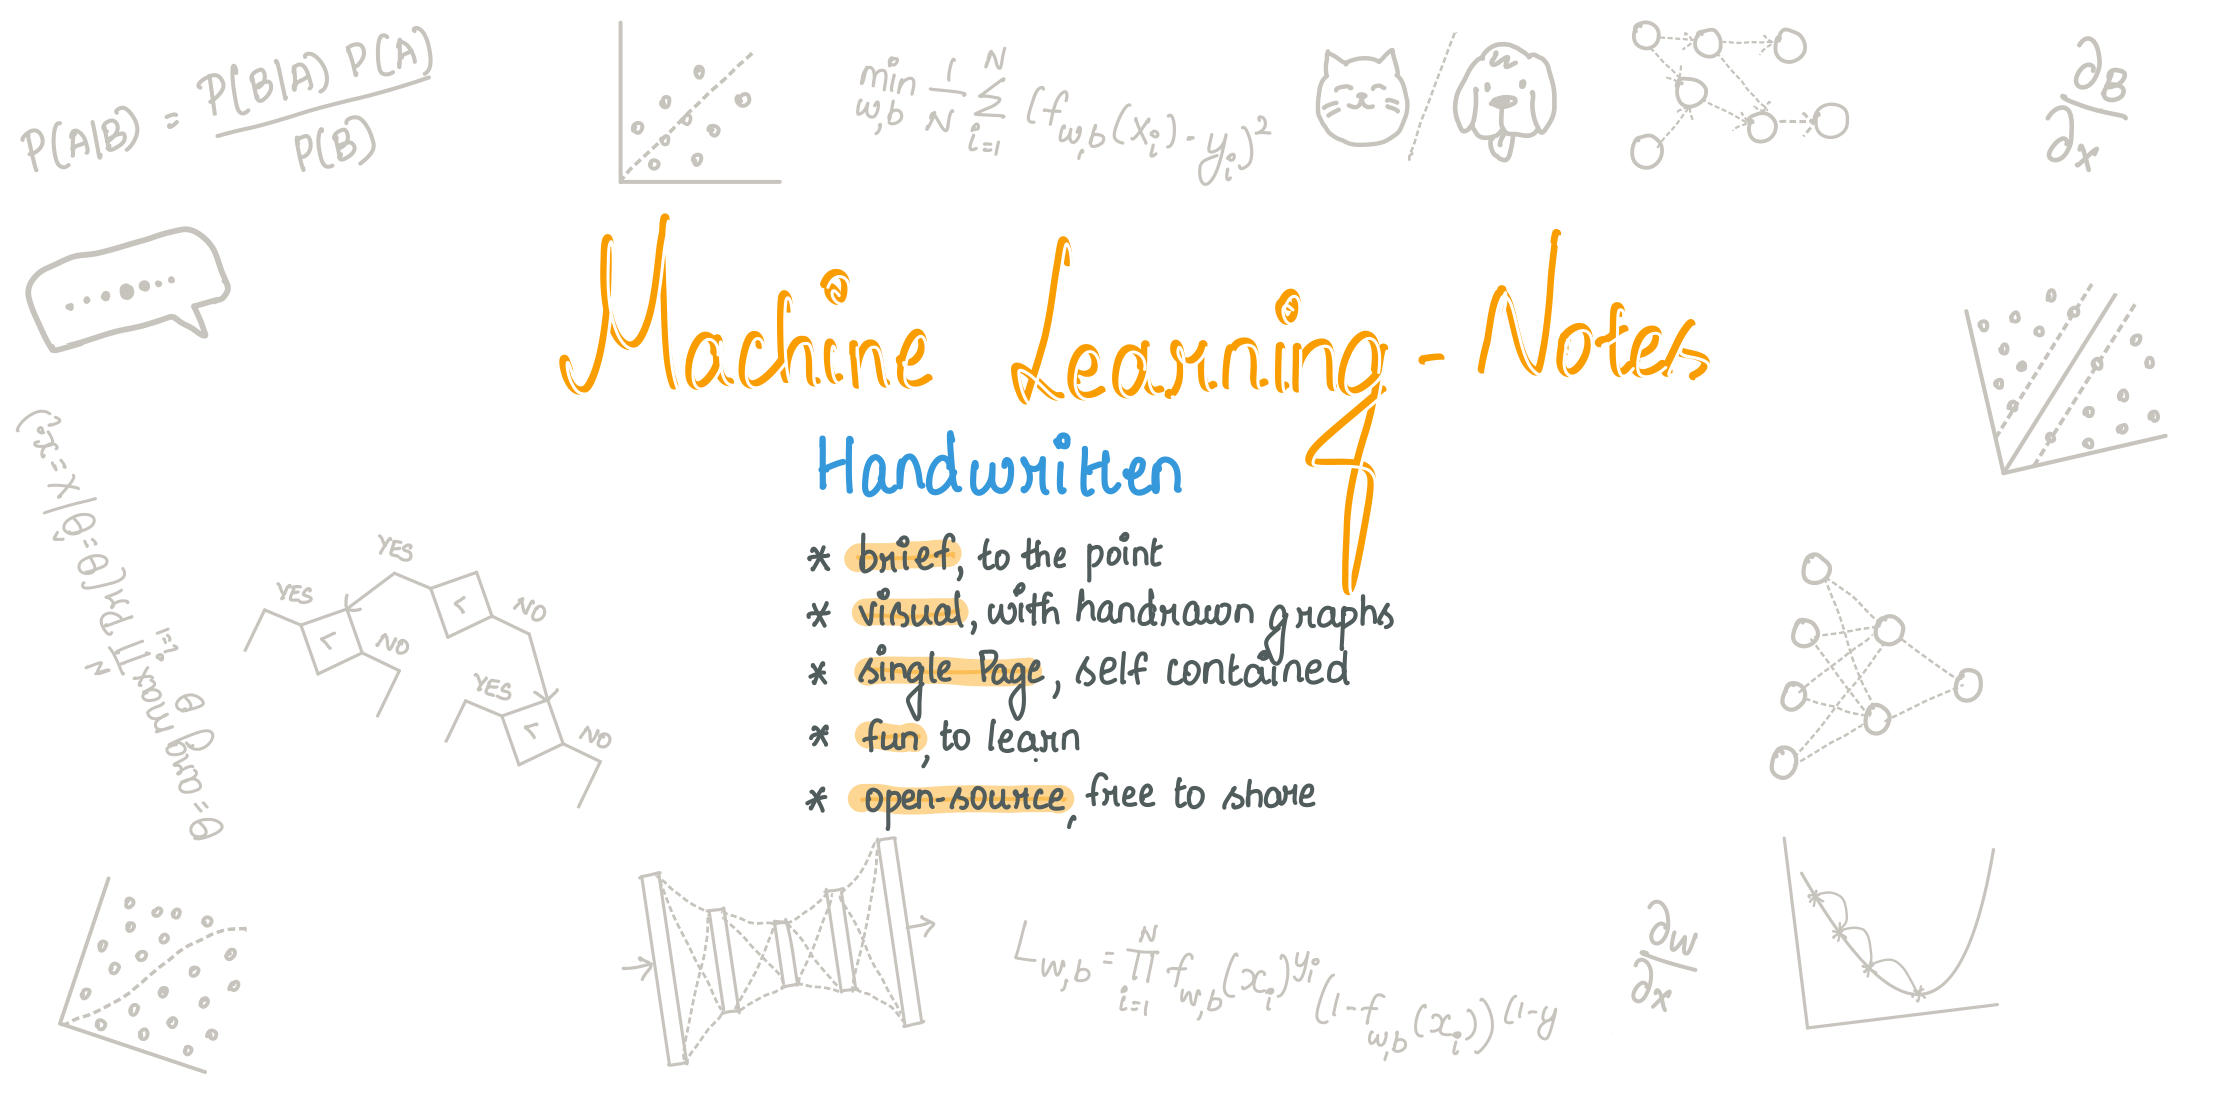 P(A|B) = P(B|A) P(A) / P(B)
min w,b 1/N N Σ i=1 (f w,b (x i) - y i)²
∂B
∂x
Machine Learning - Notes
Handwritten
* brief, to the point
* visual, with handrawn graphs
* single Page, self contained
* fun, to learn
* open-source, free to share
θ = arg max θ N ∏ i=1 Pr(θ=θ̂ | X=x i)
YES
YES
NO
NO
YES
NO
<
<
<
L w,b = N ∏ i=1 f w,b (x i) y i (1-f w,b (x i)) (1-y
∂w
∂x